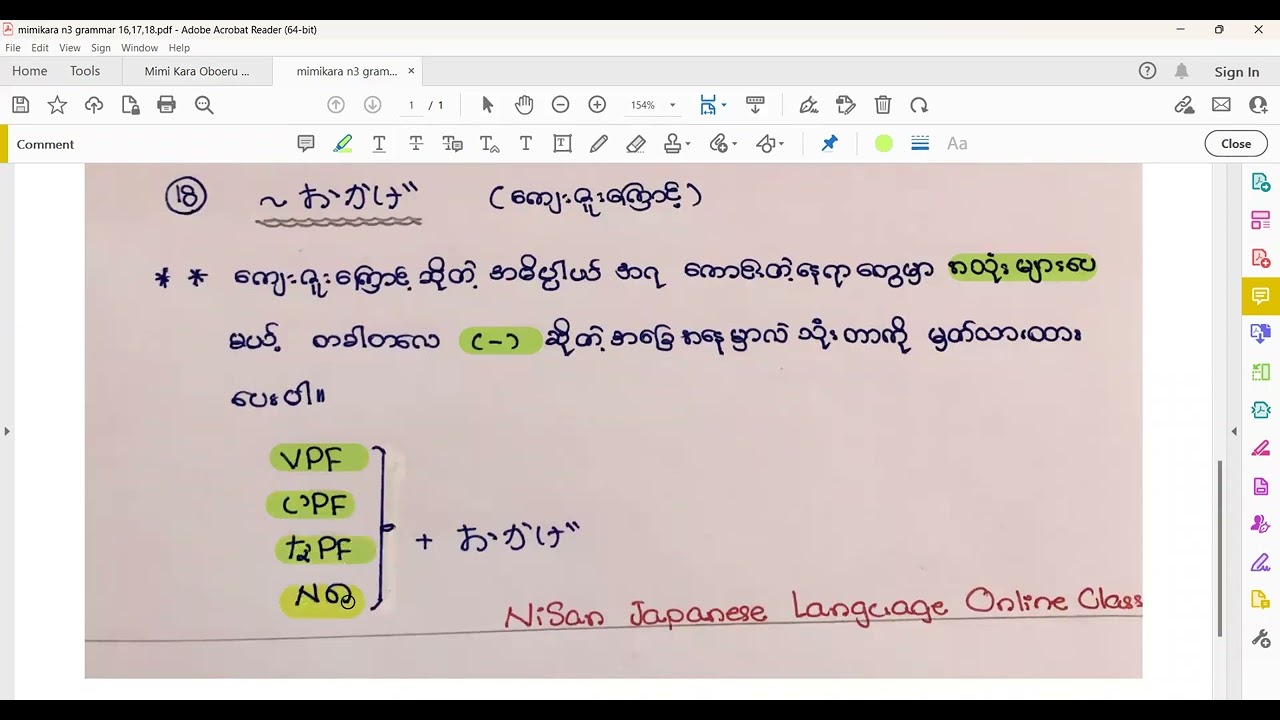 mimikara n3 grammar 16,17,18.pdf - Adobe Acrobat Reader (64-bit)
File Edit View Sign Window Help
Home Tools Mimi Kara Oboeru ... mimikara n3 gram... ×
1 / 1 154%
Sign In
Comment
Aa
Close
⑱ ～おかげ (ကျေးဇူးကြောင့်)
** ကျေးဇူးကြောင့် ဆိုတဲ့ အဓိပ္ပါယ် အရ ကောင်းတဲ့နေရာတွေမှာ အသုံးများပေ
မယ့် တခါတလေ (-) ဆိုတဲ့ အခြေအနေမှာလဲ သုံးတာကို မှတ်သားထား
ပေးပါ။
VPF
いPF
なPF
Nの
+ おかげ
NiSan Japanese Language Online Class